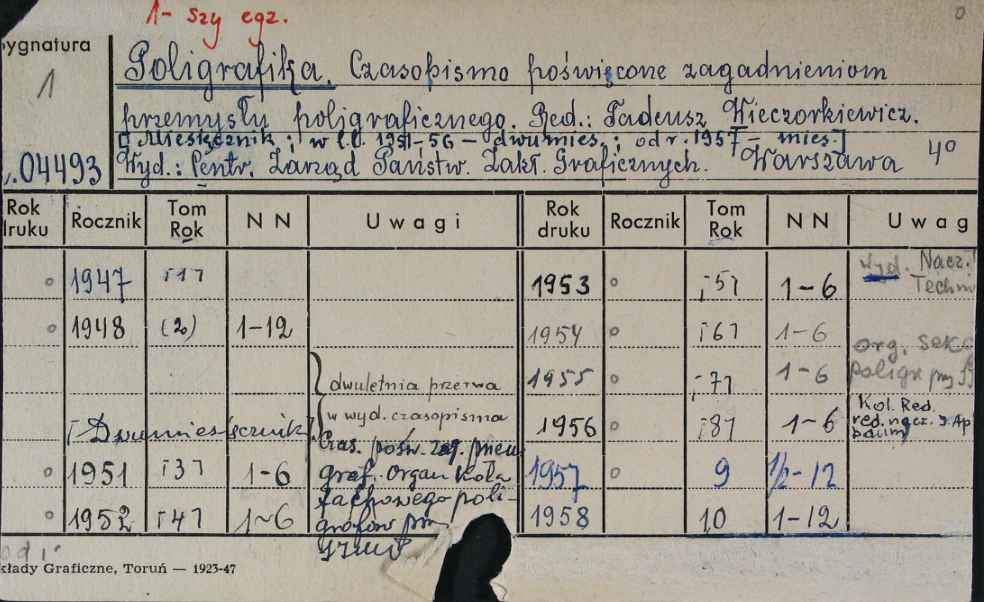 1-szy egz.
0
Sygnatura
1
04493
Poligrafika. Czasopismo poświęcone zagadnieniom
przemysłu poligraficznego. Red.: Tadeusz Wieczorkiewicz.
[Miesięcznik; w l. 1951-56 – dwumies.; od r. 1957 – mies.]
Wyd.: Centr. Zarząd Państw. Zakł. Graficznych. Warszawa 4°
Rok druku Rocznik Tom Rok NN Uwagi Rok druku Rocznik Tom Rok NN Uwag
1947 [1] 1953 [5] 1-6 wyd. Nacz. Techn
1948 (2) 1-12 1954 [6] 1-6
dwuletnia przerwa 1955 [7] 1-6 org. Sekc Poligr przy
w wyd. czasopisma
[Dwumiesięcznik] 1956 [8] 1-6 Kol. Red. red. nacz.
Czas. pośw. zag.
1951 [3] 1-6 graf. Organ Koła 1957 9 1/2-12
fachowego poli-
1952 [4] 1-6 grafów 1958 10 1-12
kłady Graficzne, Toruń — 1923-47